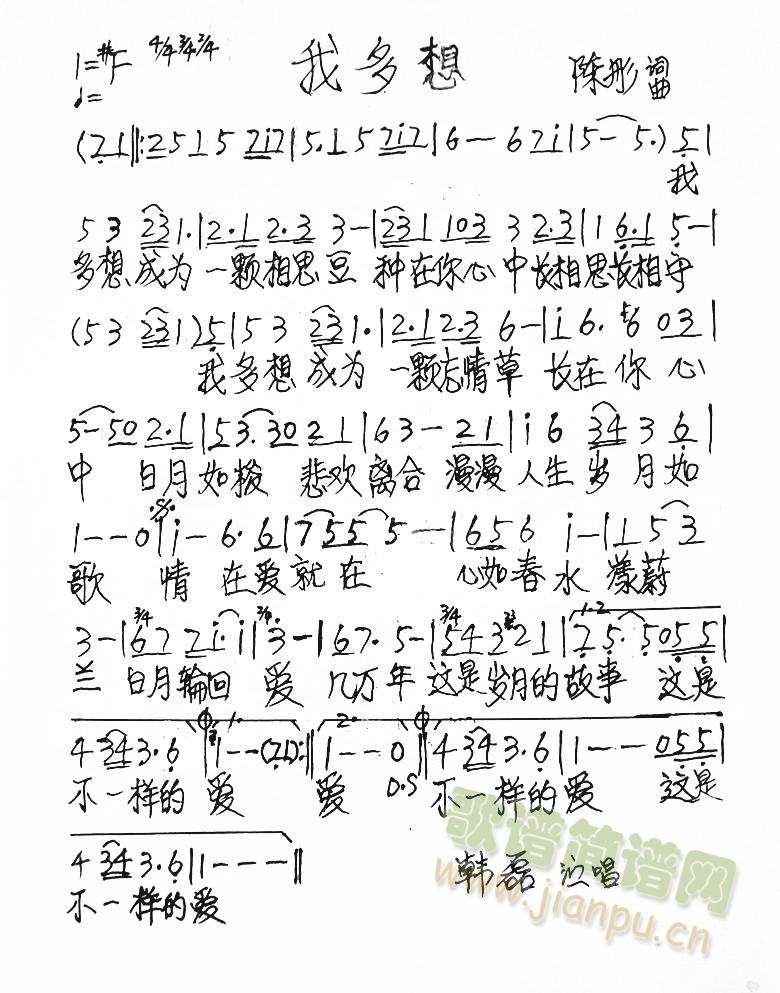 我多想
1=#F 4/4 3/4 2/4
陈彤 词曲
♩=
(2 1‖:2 5 1 5 2i7|5. 1 5 2i2|6 — 6 7 2 i|5 — 5.) 5|
我
5 3 2 3 1.|2. 1 2. 3 3 —|2 3 1 1 0 3 3 2. 3|1 6. 1 5 —|
多想成为一颗相思豆 种在你心中长相思长相守
(5 3 2 3 1) 5|5 3 2 3 1.|2. 1 2. 3 6 —|i 6. 5 6 0 3|
我多想成为一颗忘情草 长在你心
5 — 5 0 2. 1|5 3. 3 0 2 1|6 3 — 2 1|i 6 3 4 3 6|
中 日月如梭 悲欢离合 漫漫人生岁月如
1 — — 0|i — 6. 6|7 5 5 5 — —|6 5 6 i —|1 5 3
歌 情在爱就在 心如春水漾
3 —|6 7 2 i. i|3 —|6 7. 5 —|5 4 3 2 1|7 5. 5 0 5 5|
3/4 2/4 3/4 1.2
兰 日月轮回 爱几万年 这是岁月的故事 这是
1. 2.
4 3 4 3. 6|1 — — (2 1):‖1 — — 0‖4 3 4 3. 6|1 — — — 0 5 5|
D.S
不一样的爱 爱 不一样的爱 这是
4 3 4 3. 6|1 — — —‖
韩磊 演唱
不一样的爱
歌谱简谱网
www.jianpu.cn